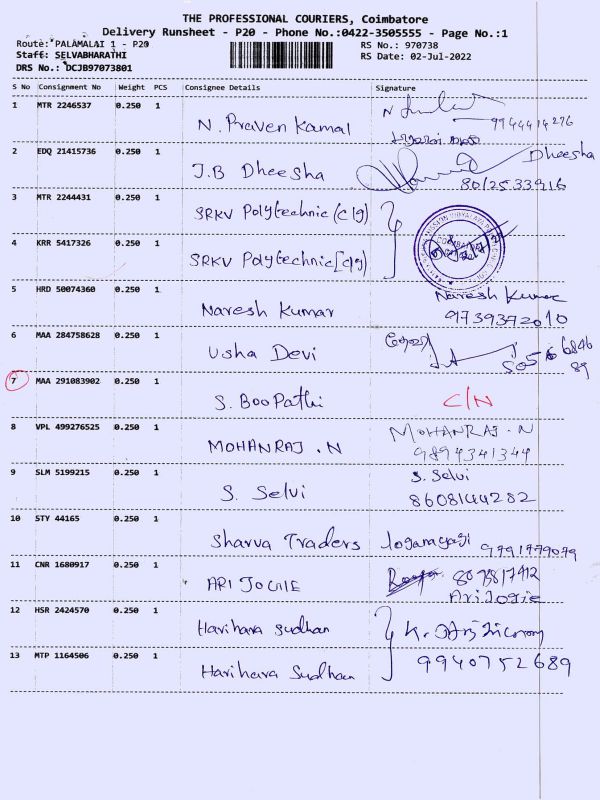 THE PROFESSIONAL COURIERS, Coimbatore
Delivery Runsheet - P20 - Phone No.:0422-3505555 - Page No.:1
Route: PALAMALAI 1 - P20
RS No.: 970738
Staff: SELVABHARATHI
RS Date: 02-Jul-2022
DRS No.: DCJB97073801
S No Consignment No Weight PCS Consignee Details Signature
1 MTR 2246537 0.250 1
N. Praven Kamal 9944414276
2 EDQ 21415736 0.250 1
J.B Dheesha Dheesha
8012533916
3 MTR 2244431 0.250 1
SRKV Polytechnic (clg)
4 KRR 5417326 0.250 1
SRKV Polytechnic [clg]
5 HRD 50074360 0.250 1
Naresh Kumar Naresh Kumar
9739372010
6 MAA 284758628 0.250 1
Usha Devi
7 MAA 291083902 0.250 1
S. Boopathi C/N
8 VPL 499276525 0.250 1
MOHANRAJ . N MOHANRAJ . N
9894341344
9 SLM 5199215 0.250 1
S. Selvi S. Selvi
8608144282
10 STY 44165 0.250 1
Sharva Traders loganayagi 9791779079
11 CNR 1680917 0.250 1
ARI JOGIE
Ari Jogie
12 HSR 2424570 0.250 1
Harihara Sudhan
13 MTP 1164506 0.250 1
Harihara Sudhan 9940752689